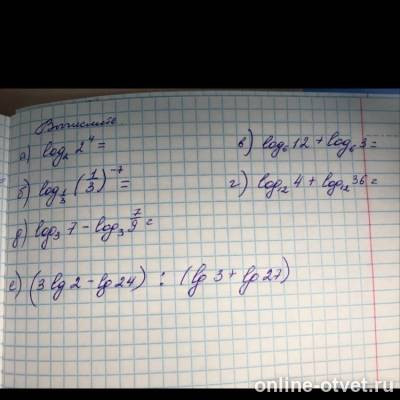 Вычислить
а) log₂ 2⁴ =
б) log_{1/3} (1/3)⁻⁷ =
д) log₃ 7 - log₃ 7/9 =
в) log₆ 12 + log₆ 3 =
г) log₁₂ 4 + log₁₂ 36 =
е) (3 lg 2 - lg 24) : (lg 3 + lg 27)
online-otvet.ru